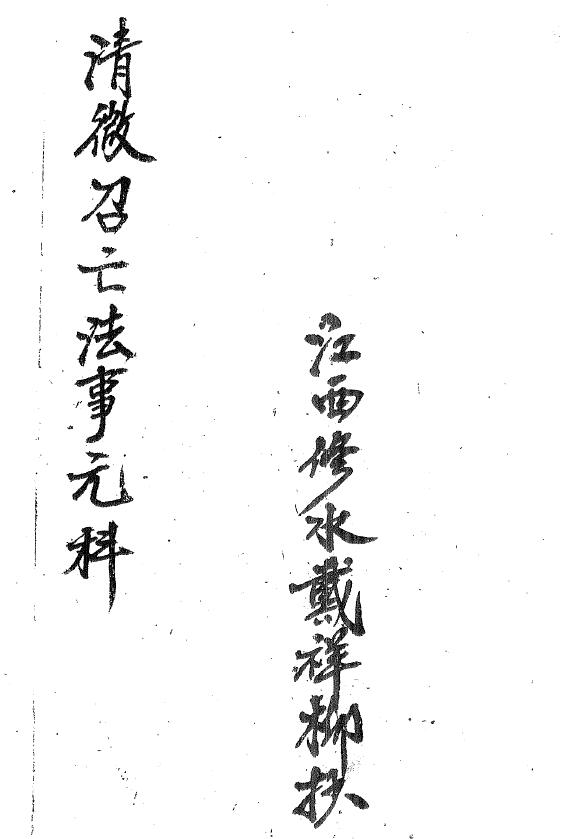 江西修水戴祥柳
清微召亡法事元科